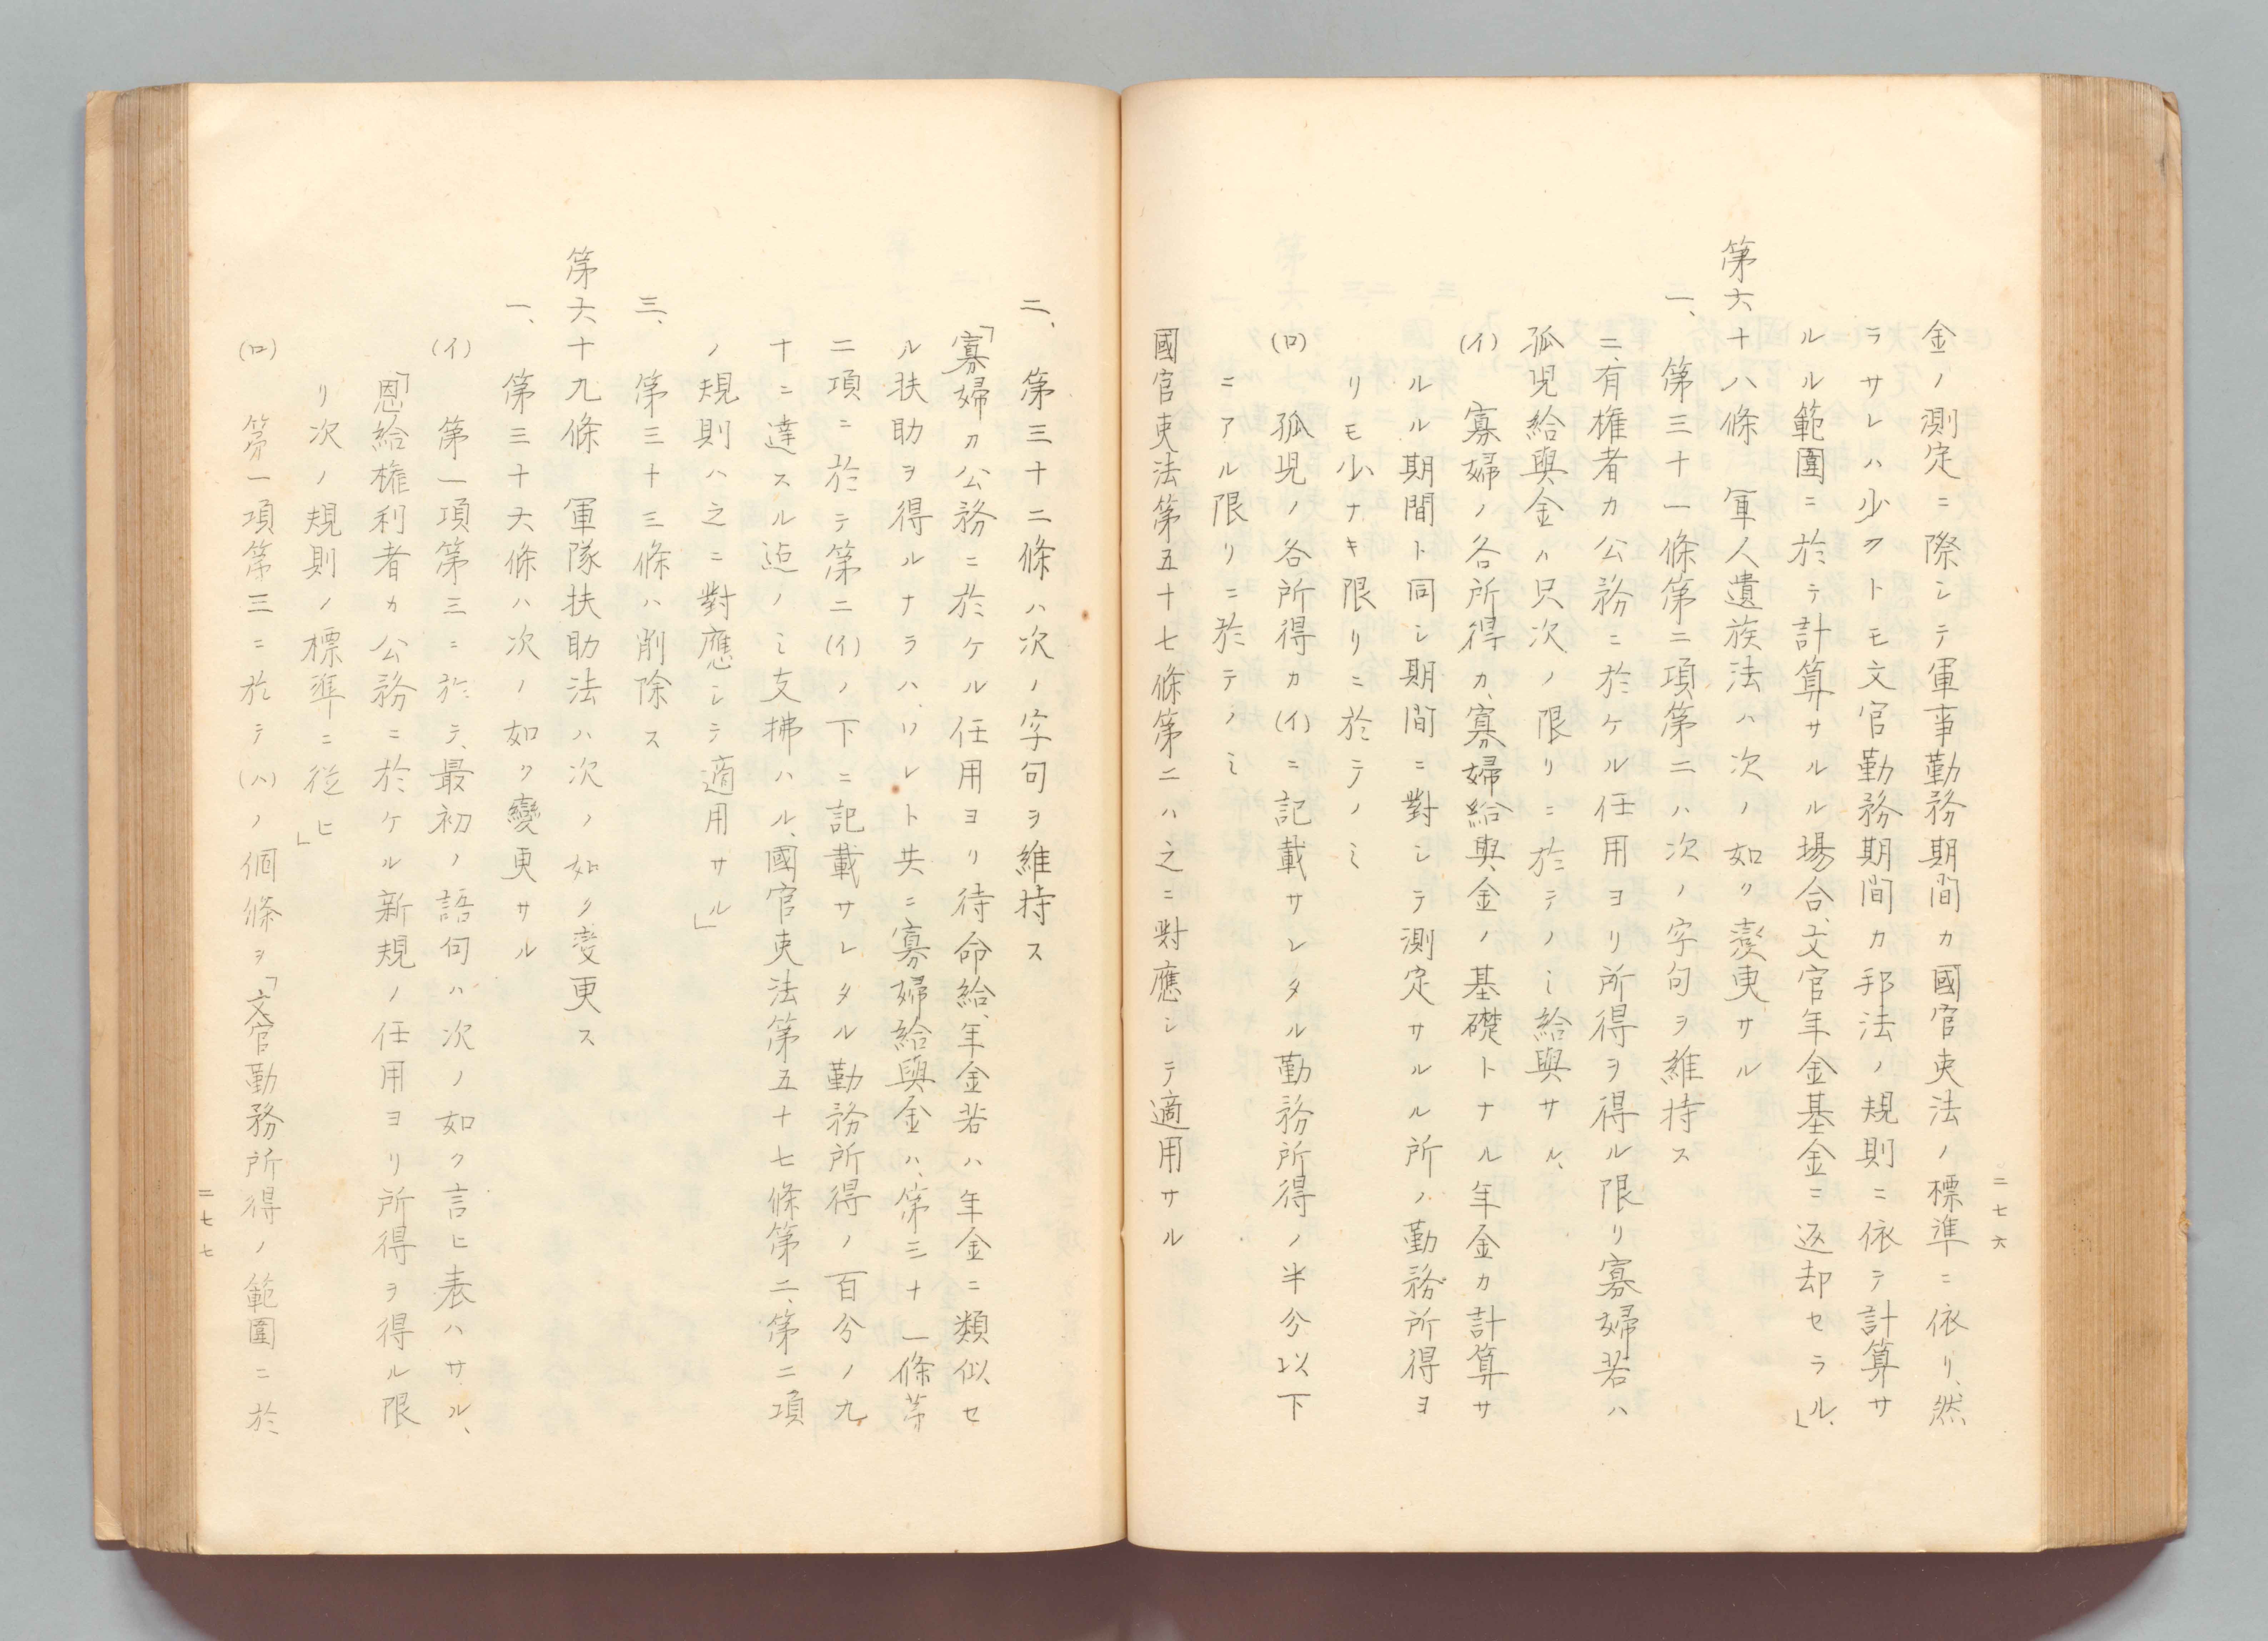 金ノ測定ニ際シテ軍事勤務期間カ國官吏法ノ標準ニ依リ、然
ラサレハ少クトモ文官勤務期間カ邦法ノ規則ニ依テ計算サ
ルル範圍ニ於テ計算サルル場合、文官年金基金ニ返却セラル、」
第六十八條　軍人遺族法ハ次ノ如ク變更サル
一、第三十一條第二項第二ハ次ノ字句ヲ維持ス
二、有権者カ公務ニ於ケル任用ヨリ所得ヲ得ル限リ寡婦若ハ
孤児給與金ハ只次ノ限リニ於テノミ給與サル、
(イ)　寡婦ノ各所得カ、寡婦給與金ノ基礎トナル年金カ計算サ
ルル期間ト同シ期間ニ對シテ測定サルル所ノ勤務所得ヨ
リモ少ナキ限リニ於テノミ
(ロ)　孤児ノ各所得カ(イ)ニ記載サレタル勤務所得ノ半分以下
ニアル限リニ於テノミ
國官吏法第五十七條第二ハ之ニ對應シテ適用サル
二七六
二、第三十二條ハ次ノ字句ヲ維持ス
「寡婦カ公務ニ於ケル任用ヨリ待命給、年金若ハ年金ニ類似セ
ル扶助ヲ得ルナラハ、ソレト共ニ寡婦給與金ハ、第三十一條第
二項ニ於テ第二(イ)ノ下ニ記載サレタル勤務所得ノ百分ノ九
十ニ達スル迄ノミ支拂ハル、國官吏法第五十七條第二、第二項
ノ規則ハ之ニ對應シテ適用サル」
三、第三十三條ハ削除ス
第六十九條　軍隊扶助法ハ次ノ如ク変更ス
一、第三十六條ハ次ノ如ク變更サル
(イ)　第一項第三ニ於テ、最初ノ語句ハ次ノ如ク言ヒ表ハサル、
「恩給権利者カ公務ニ於ケル新規ノ任用ヨリ所得ヲ得ル限
リ次ノ規則ノ標準ニ從ヒ」
(ロ)　第一項第三ニ於テ(ハ)ノ個條ヲ「文官勤務所得ノ範圍ニ於
二七七